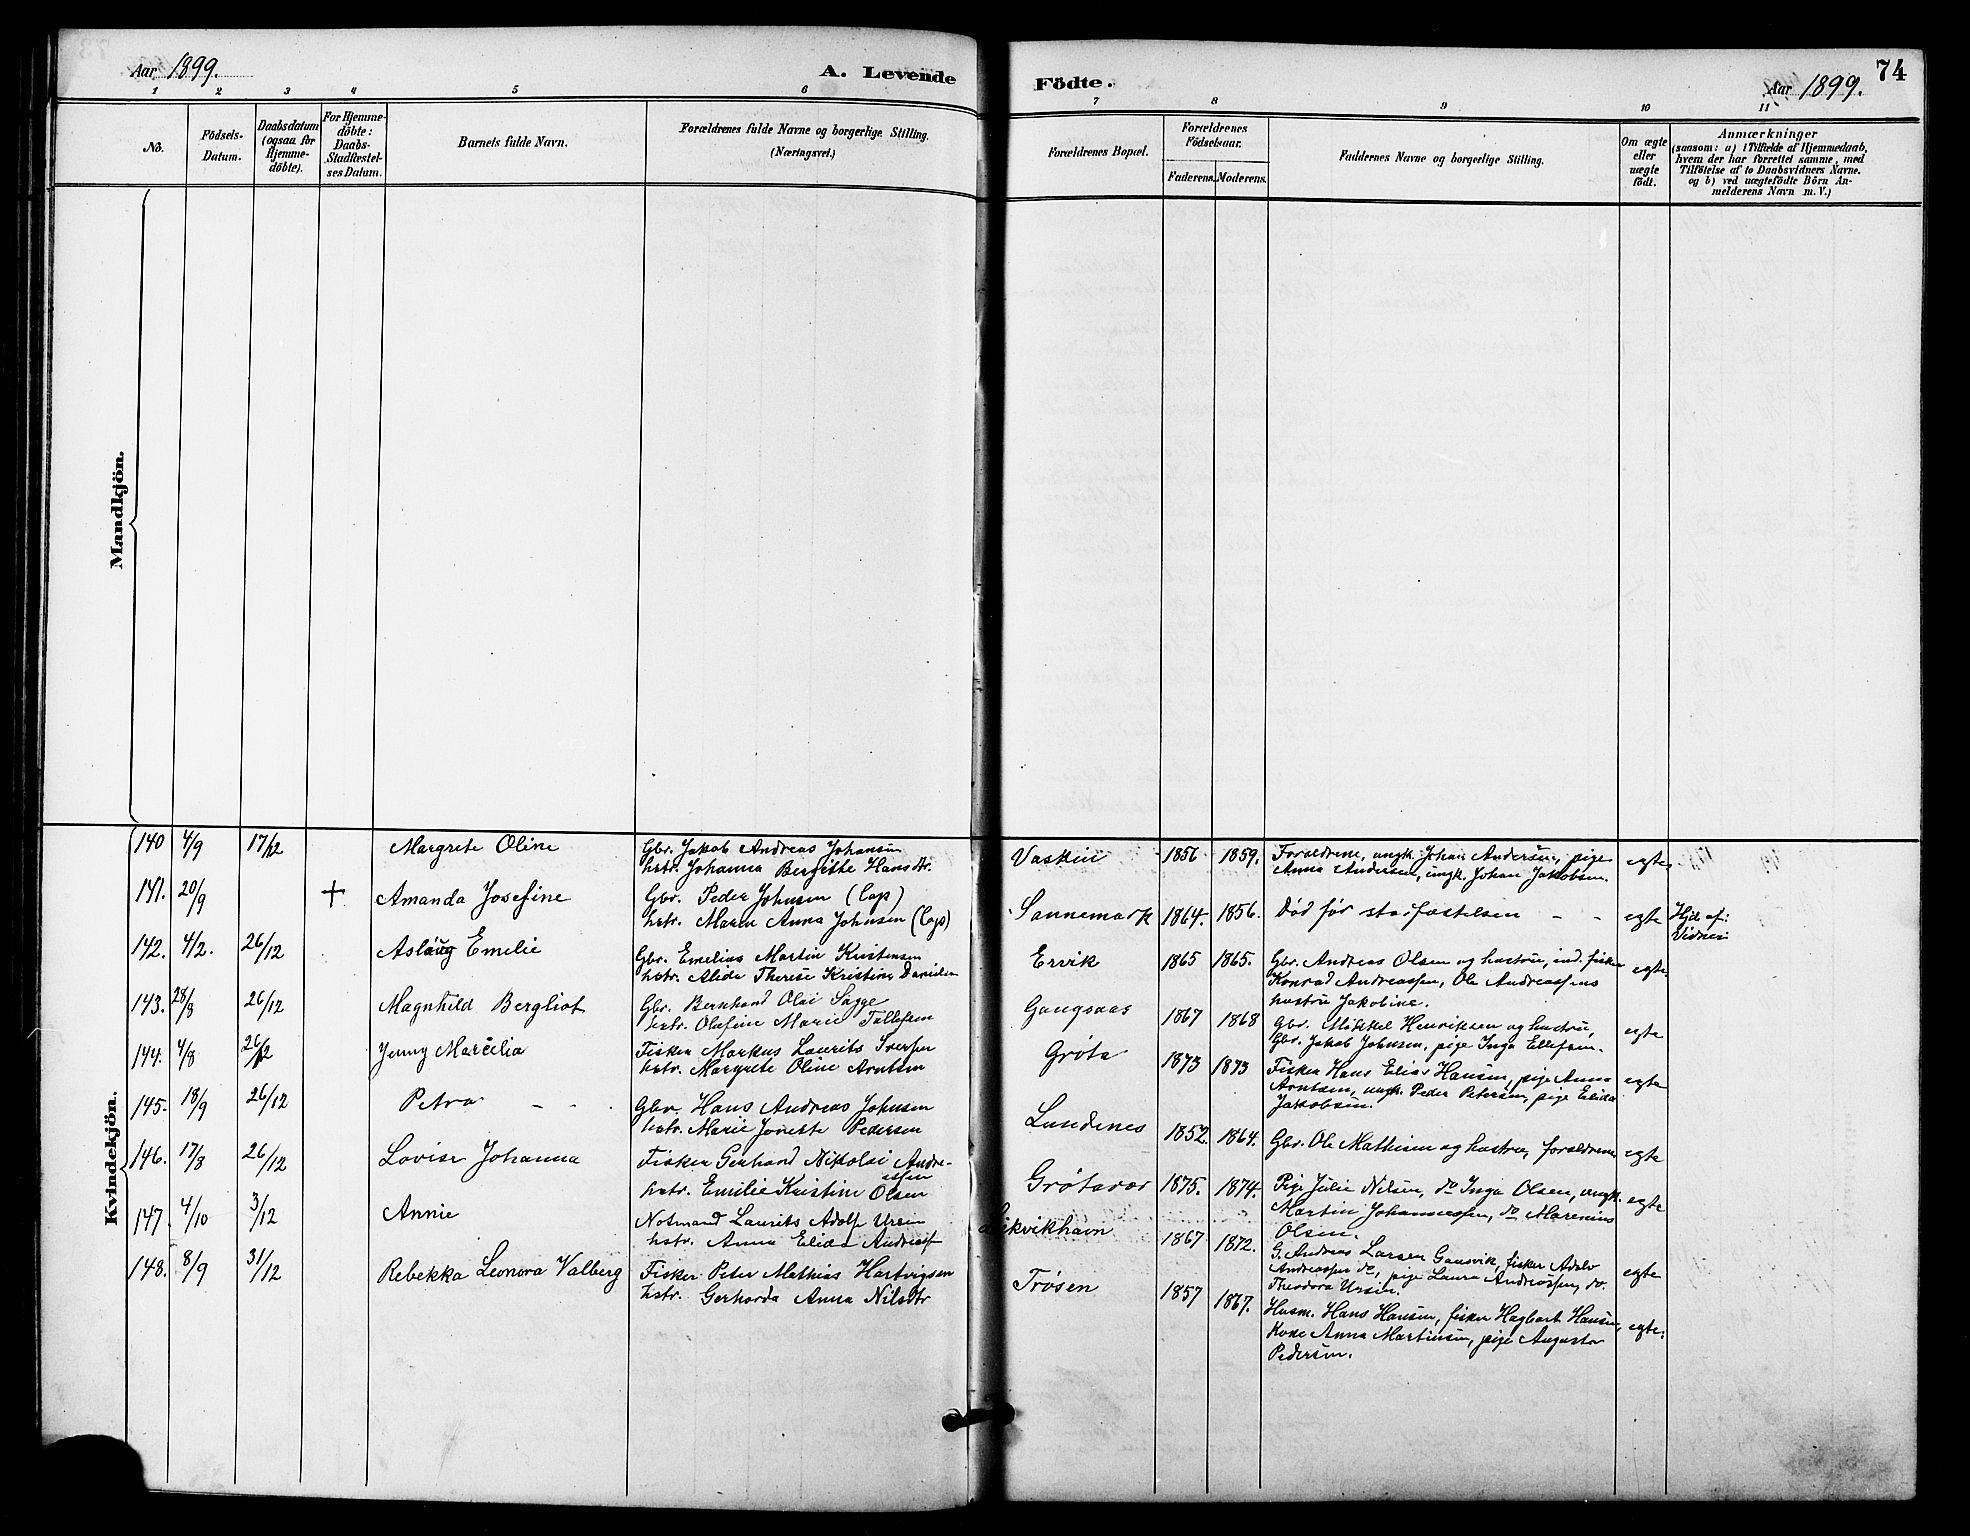 Aar 1899.
A. Levende
Födte.
Aar 1899.
74
1 2 3 4 5 6 7 8 9 10 11
No.
Födsels-
Datum.
Daabsdatum
(ogsaa for
Hjemme-
döbte).
For Hjemme-
döbte:
Daabs-
Stadfæstel-
ses Datum.
Barnets fulde Navn.
Forældrenes fulde Navne og borgerlige Stilling.
(Næringsvei.)
Forældrenes Bopæl.
Forældrenes
Födselsaar.
Faderens. Moderens.
Faddernes Navne og borgerlige Stilling.
Om ægte
eller
uægte
födt.
Anmærkninger
(saasom: a) i Tilfælde af Hjemmedaab,
hvem der har forrettet samme, med
Tilföielse af to Daabsvidners Navne.
og b) ved uægtefödte Börn An-
melderens Navn m. V.)
Mandkjön.
Kvindekjön.
140 4/9 17/12 Margrete Oline
Gbr. Jakob Andreas Johansen
hstr. Johanna Bergitte Hansdtr.
Vaskin 1856 1859.
Forældrene, ungk. Johan Andersen, pige
Anna Andersen, ungk. Johan Jakobsen.
egte
141. 20/9 + Amanda Josefine
Gbr. Peder Johnsen (Lap)
hstr. Maren Anna Johnsen (Lap)
Sannemark 1864. 1856. Död för stadfæstelsen - - egte
Hjd. af:
Vidner:
142. 4/2. 26/12 Aslaug Emelie
Gbr. Emelius Martin Kristensen
hstr. Alide Therese Kristine Danielsen
Ervik 1865 1865.
Gbr. Andreas Olsen og hustru, ind. fisker
Konrad Andreassen, Ole Andreassens
hustru Jakobine.
egte
143. 28/8 26/12 Magnhild Bergliot
Gbr. Bernhard Olai Sagge
hstr. Olufine Marie Tollefsen
Gangsaas 1867 1868
Gbr. Mikkel Henriksen og hustru,
Gbr. Jakob Johnsen, pige Inga Ellefsen.
egte
144. 4/8 26/12 Jenny Marcelia
Fisker Markus Laurits Iversen
hstr. Margrete Oline Arntsen
Gröta 1873 1873
Fisker Hans Elias Hansen, pige Anna
Arntsen, ungk. Peder Petersen, pige Elida
Jakobsen.
egte
145. 18/9 26/12 Petra - -
Gbr. Hans Andreas Johnsen
hstr. Marie Jonette Pedersen
Lundenes 1852. 1864. Gbr. Ole Mathisen og hustru, forældrene egte
146. 17/8 26/12 Lovise Johanna
Fisker Gerhard Nikolai Andre-
assen
hstr. Emilie Kristine Olsen
Grötavær 1875. 1874.
Pige Julie Nilsen, do Inga Olsen, ungk.
Martin Johannessen, do Marenius
Olsen.
egte
147. 4/10 3/12 Annie
Notmand Laurits Adolf Ursin
hstr. Anna Elida Andreass
1867 1872.
G. Andreas Larsen Gausvik, fisker Adolv
Andreassen do, pige Laura Andreassen, do.
Theodora Ursin.
egte
148. 8/9 31/12 Rebekka Leonora Valberg
Fisker Peter Mathias Hartvigsen
hstr. Gerharda Anna Nilsdtr
Trösen 1857 1867.
Husm. Hans Hansen, fisker Hagbart Hansen,
Kone Anna Martinsen, pige Augusta
Pedersen.
egte.